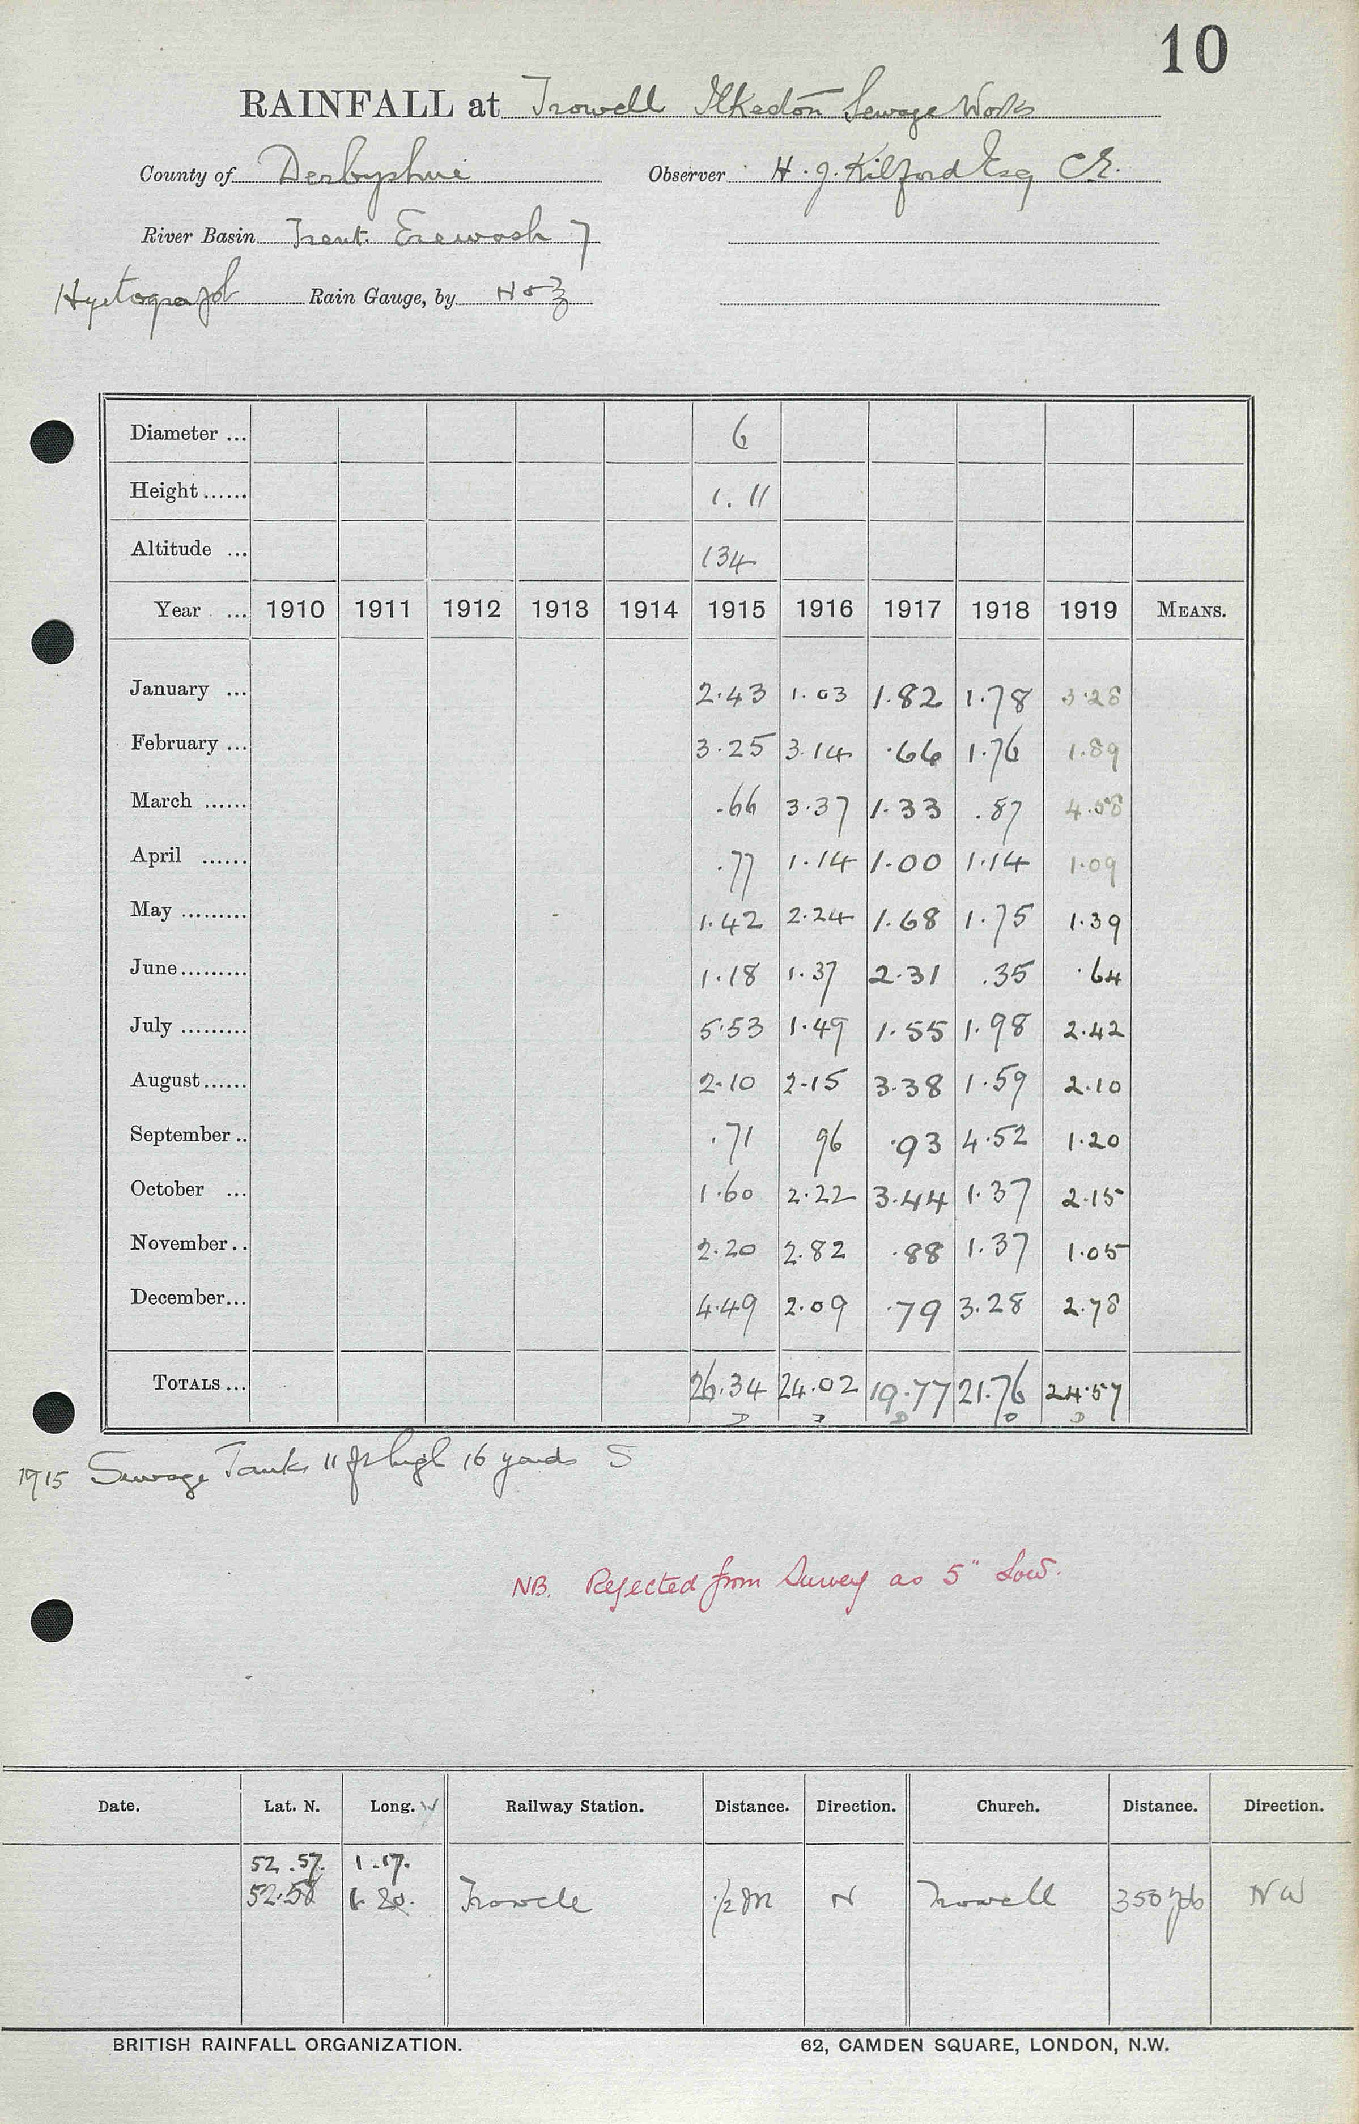 10
RAINFALL at Trowell Ilkeston Sewage Works
County of Derbyshire Observer H. J. Kilford Esq C.E.
River Basin Trent. Erewash 7
Hyetograph Rain Gauge, by N & Z
Diameter ... 6
Height ...... 1. 11
Altitude ... 134
Year ... 1910 1911 1912 1913 1914 1915 1916 1917 1918 1919 MEANS.
January ... 2.43 1.03 1.82 1.78 3.28
February ... 3.25 3.14 .66 1.76 1.89
March ...... .66 3.37 1.33 .87 4.58
April ...... .77 1.14 1.00 1.14 1.09
May ......... 1.42 2.24 1.68 1.75 1.39
June......... 1.18 1.37 2.31 .35 .64
July ......... 5.53 1.49 1.55 1.98 2.42
August ...... 2.10 2.15 3.38 1.59 2.10
September .. .71 96 .93 4.52 1.20
October ... 1.60 2.22 3.44 1.37 2.15
November .. 2.20 2.82 .88 1.37 1.05
December... 4.49 2.09 .79 3.28 2.78
TOTALS ... 26.34 24.02 19.77 21.76 24.57
1915 Sewage Tanks 11 ft high 16 yards S
NB. Rejected from Survey as 5" Low.
Date. Lat. N. Long. W Railway Station. Distance. Direction. Church. Distance. Direction.
52.57. 1.17.
52.58 1.20. Trowell 1/2 m N Trowell 350 yds NW
BRITISH RAINFALL ORGANIZATION. 62, CAMDEN SQUARE, LONDON, N.W.